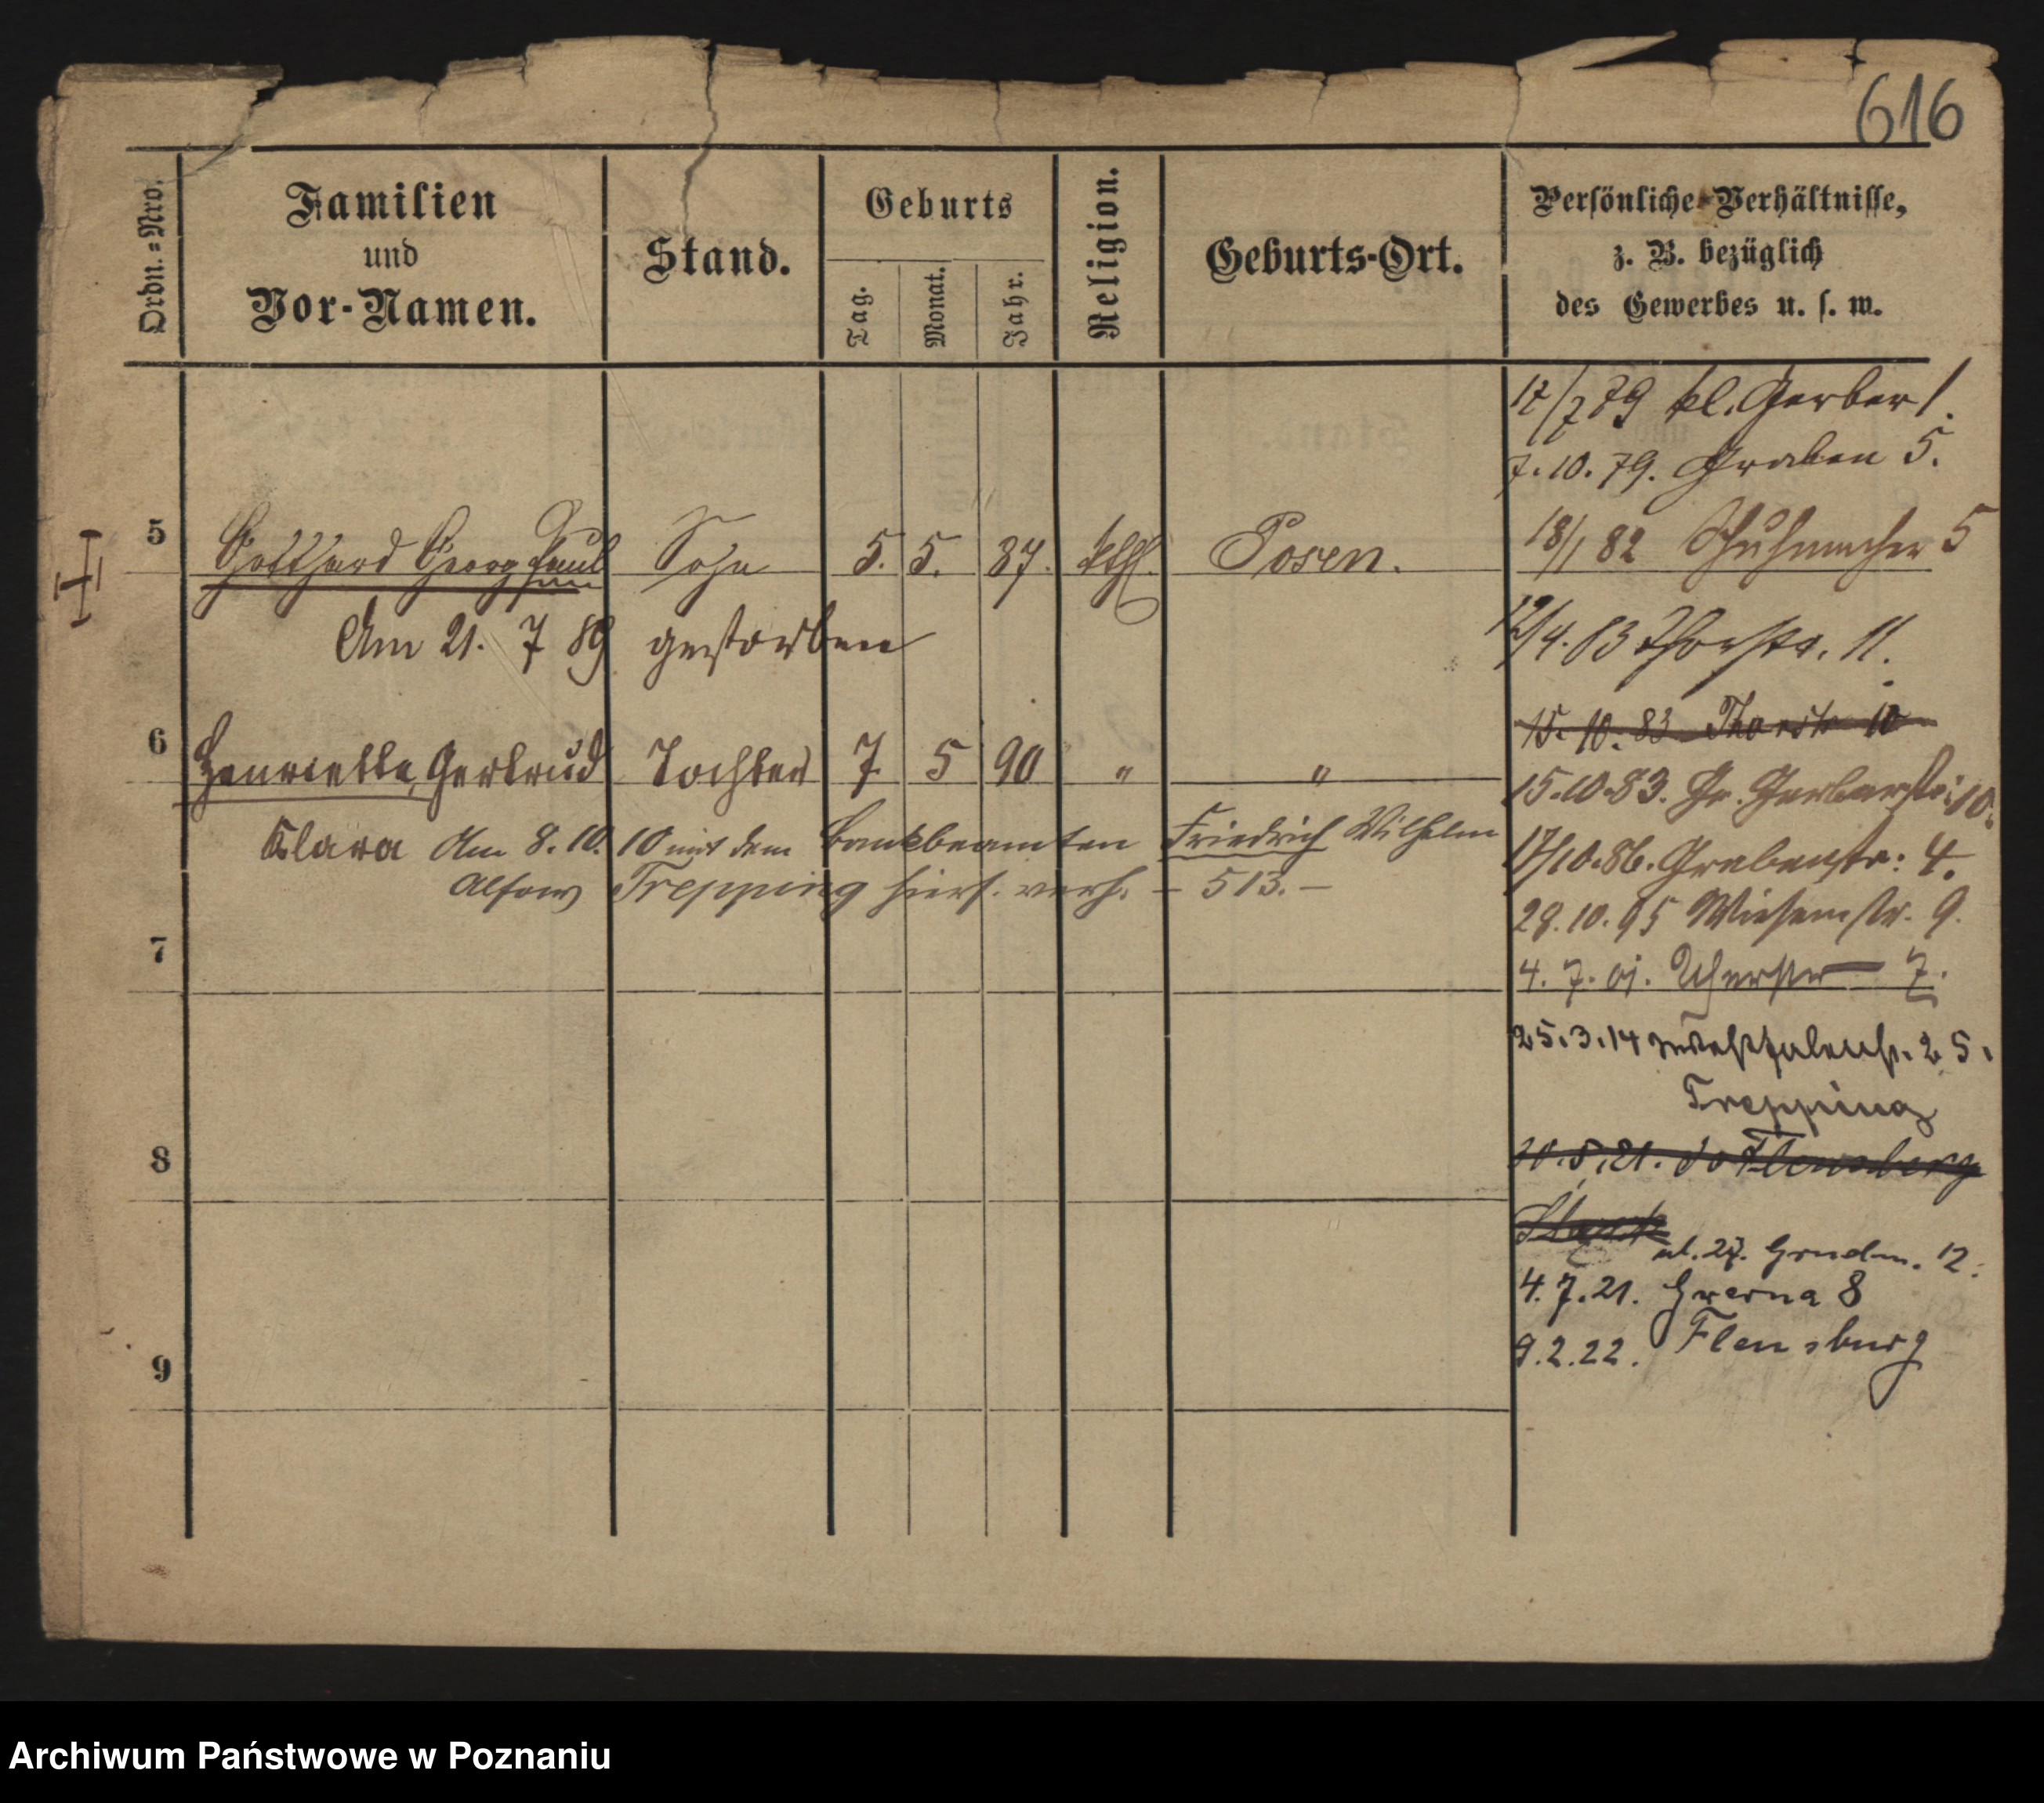 616
Ordn.=Nro.
Familien
und
Vor-Namen.
Stand.
Geburts
Tag.
Monat.
Jahr.
Religion.
Geburts-Ort.
Persönliche Verhältnisse,
z. B. bezüglich
des Gewerbes u. s. w.
17/7 79 kl. Gerber 1.
7.10.79. Graben 5.
5 Gotthard Georg Paul Sohn 5. 5. 87. kth. Posen.
18/1 82 Schuhmacher 5
Am 21. 7 89 gestorben
12/4.83 Thorstr. 11.
15.10.83 Thorstr 10
6 Henriette, Gertrud Tochter 7 5 90 " "
15.10.83. Gr. Gerberstr: 10.
Klara Am 8.10.10 mit dem Bankbeamten Friedrich Wilhelm
17/10.86. Grabenstr: 4.
Alfons Trepping hiers. verh. – 513. –
28.10.95 Wiesenstr. 9.
7
4. 7. 01. Uferstr 7.
25.3.14 Westfalenstr. 25.
Trepping
8
30.5.21. Flensberg
ul. 27. Grudn. 12.
4.7.21. Gwerna 8
9.2.22. Flensburg
9
Archiwum Państwowe w Poznaniu